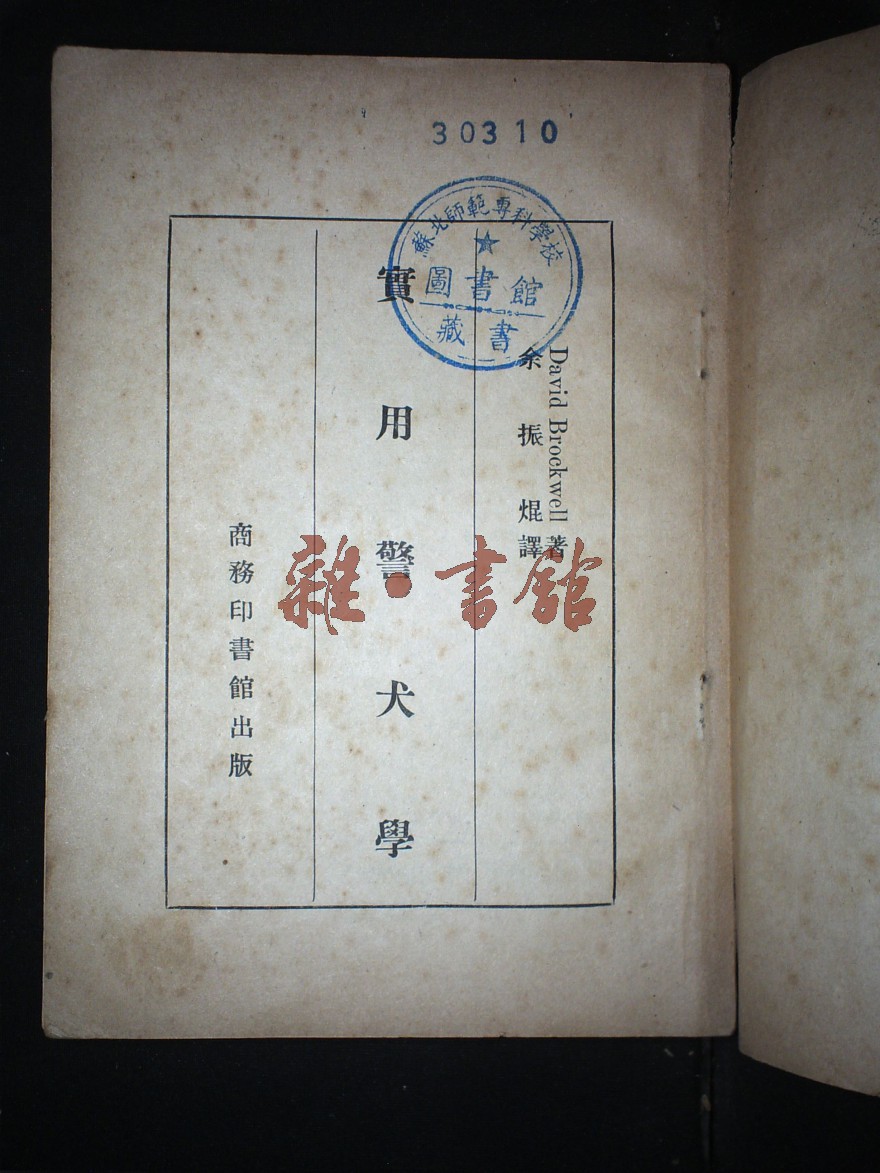 30310
蘇北師範專科學校
圖書館
藏書
David Brockwell 著
余振焜譯
實用警犬學
商務印書館出版
雜·書館